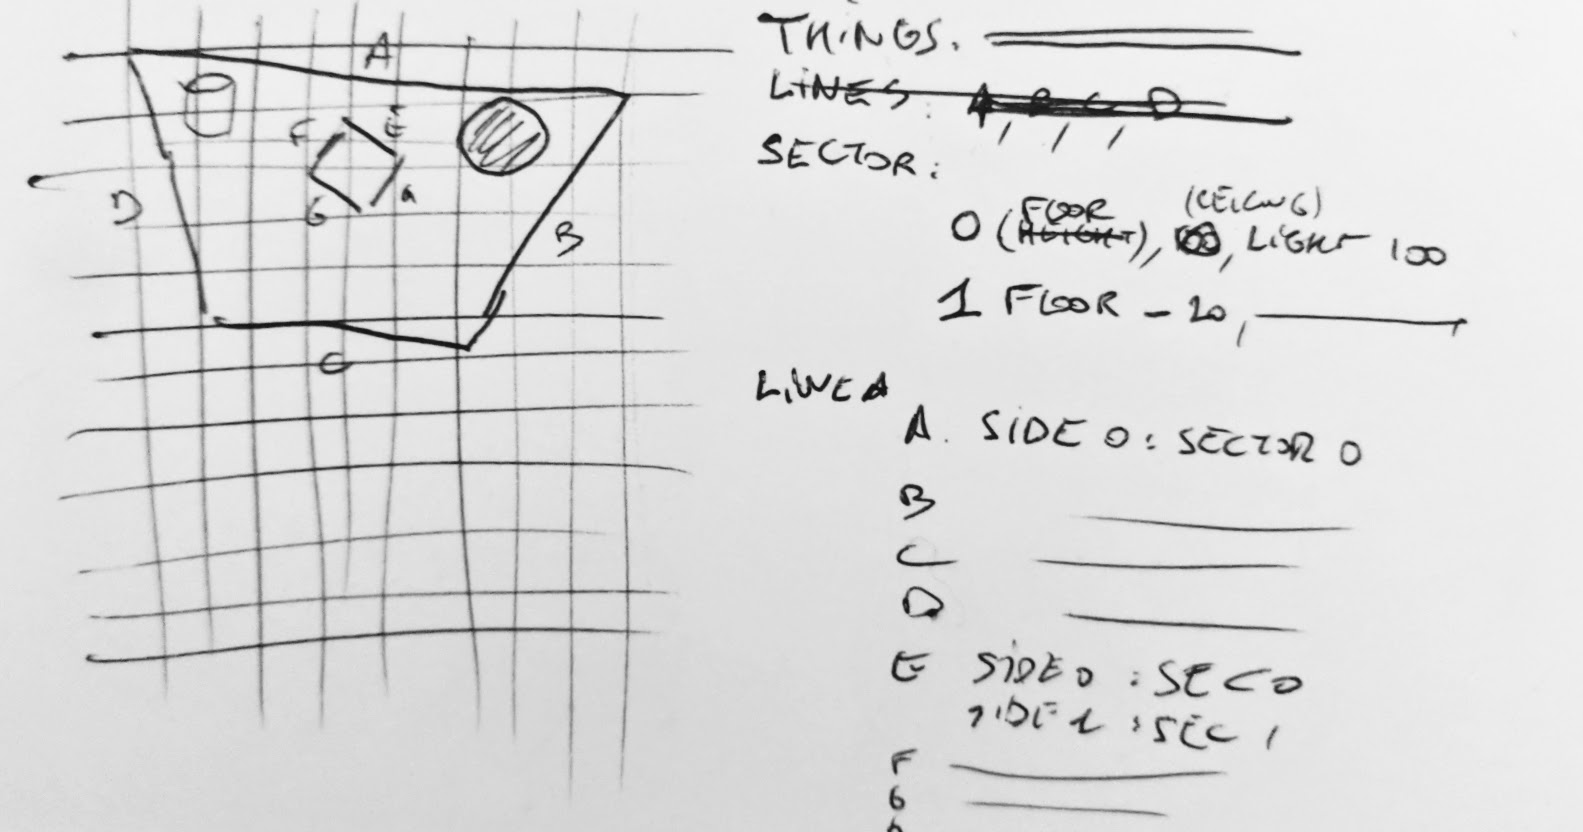 A
F
E
D
G
B
C
THINGS.
LINES: A B C D
, , ,
SECTOR:
(CEILING)
FLOOR
0 (HEIGHT), , LIGHT 100
1 FLOOR - 20,
LINEA
A. SIDE 0: SECTOR 0
B
C
D
E SIDE 0 : SEC 0
SIDE 1 : SEC 1
F
G